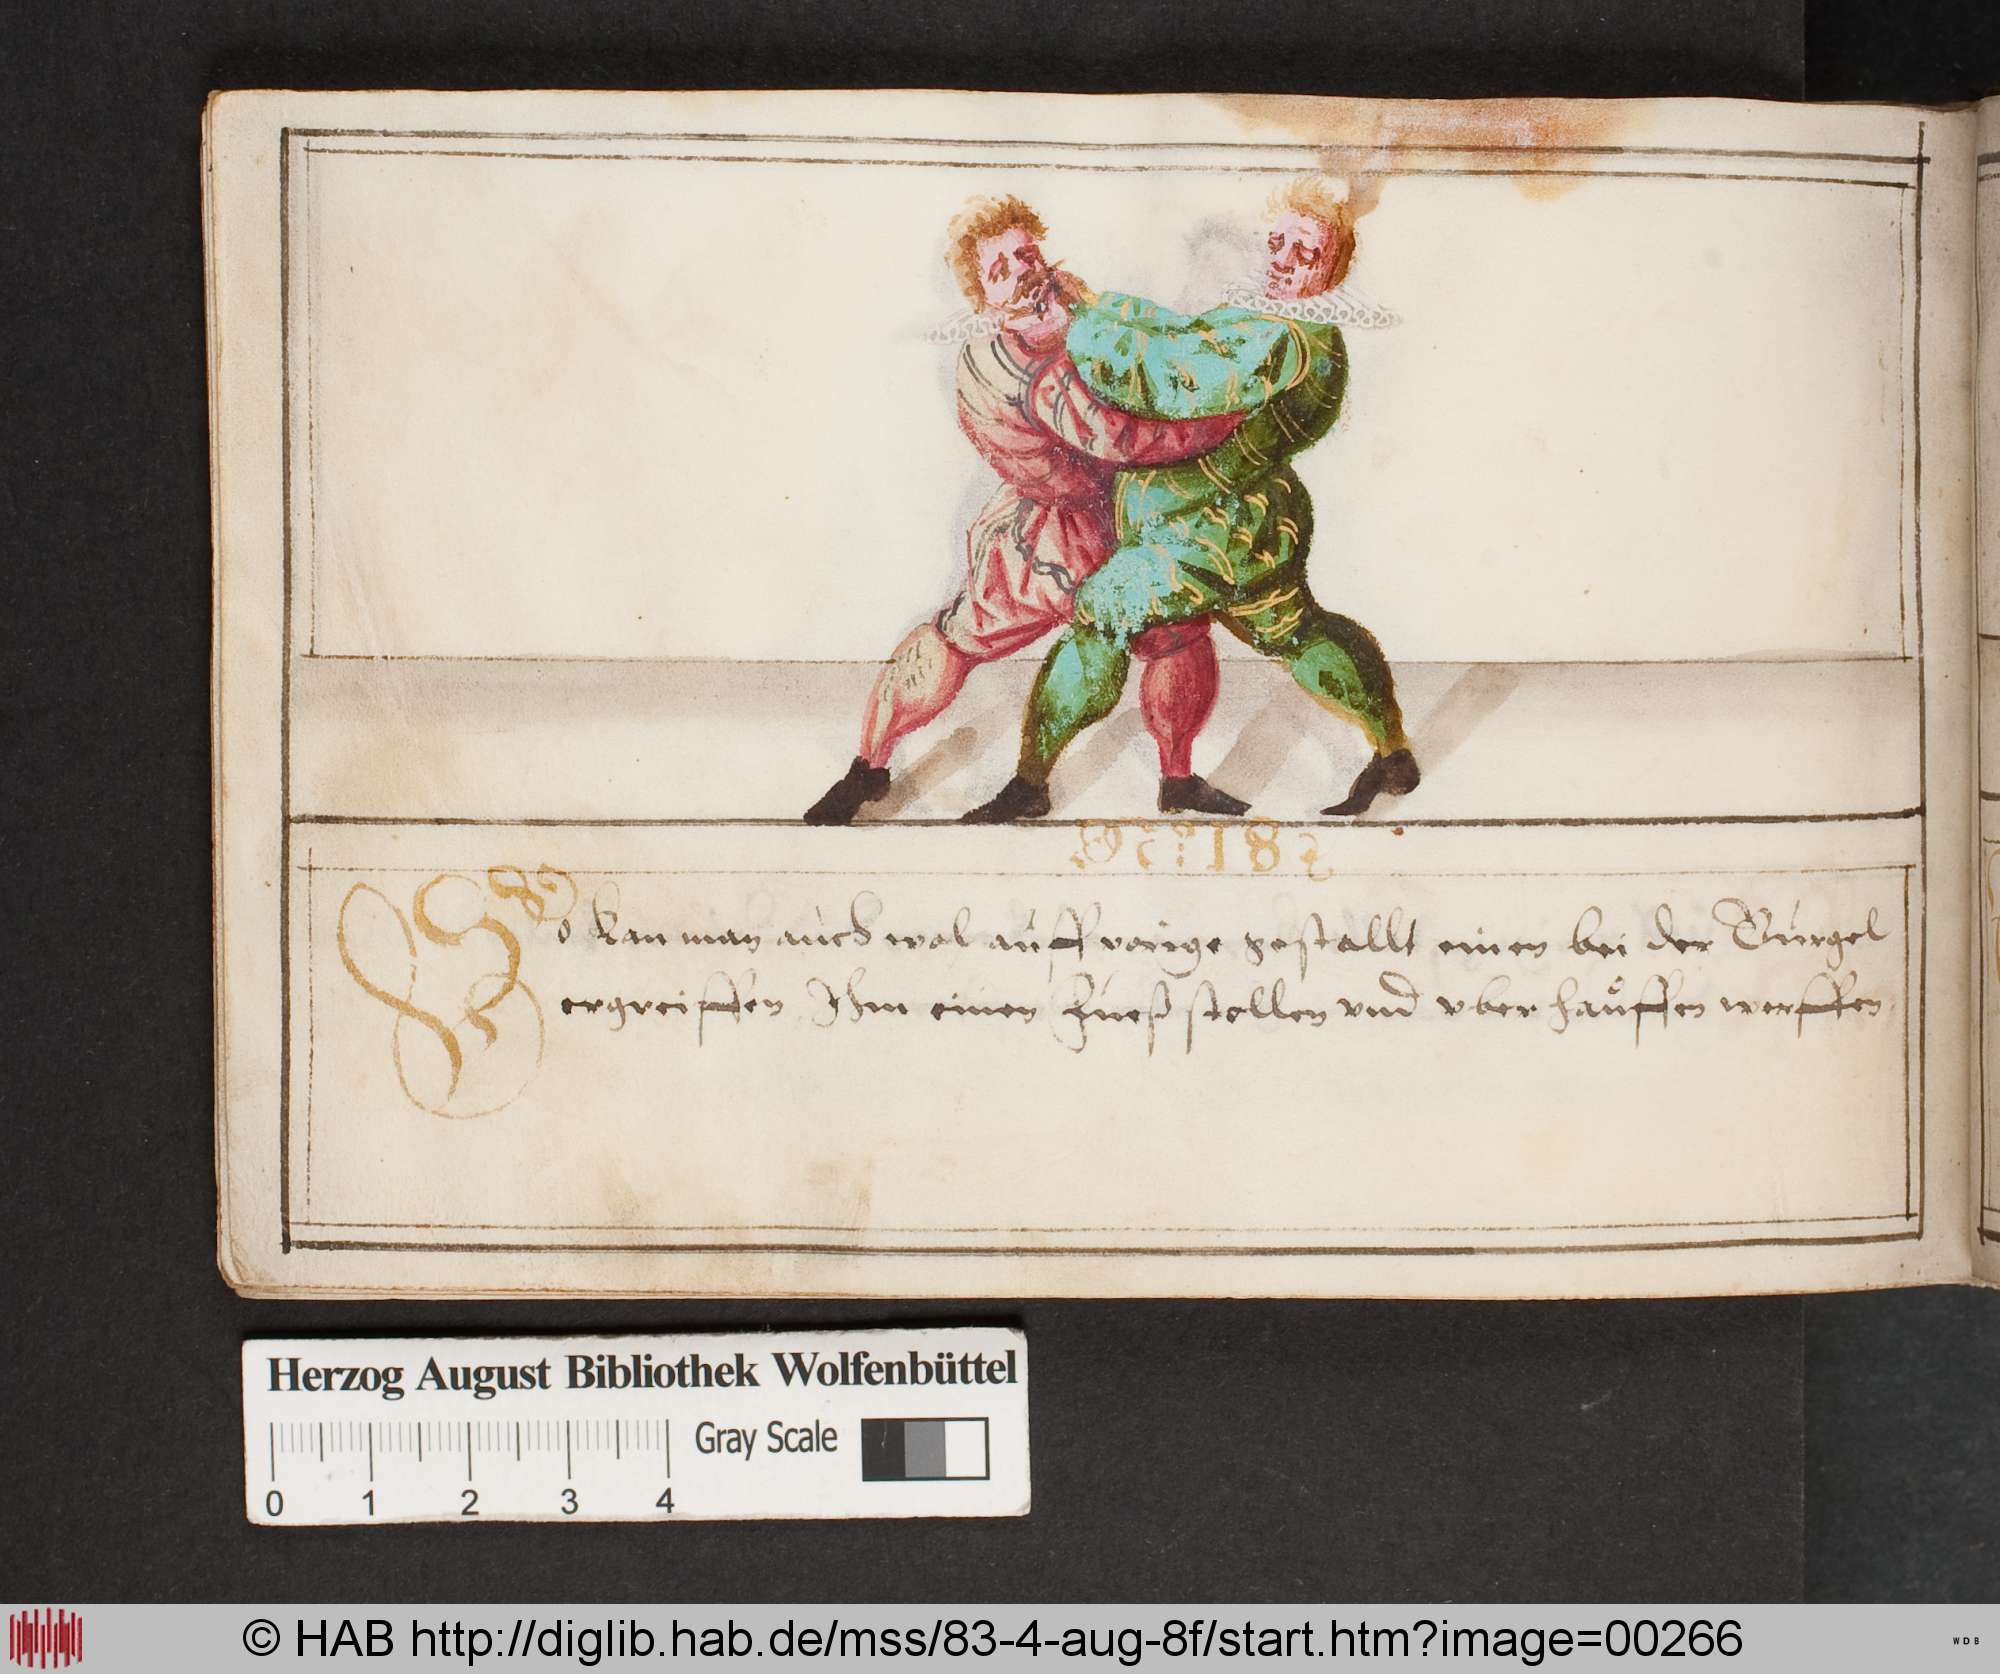 So kan man auch wol auff vorige gestallt einen bei der Gurgel
ergreiffen Ihm einen Fueß stellen vnd vber hauffen werffen.
Herzog August Bibliothek Wolfenbüttel
Gray Scale
0 1 2 3 4
© HAB http://diglib.hab.de/mss/83-4-aug-8f/start.htm?image=00266
WDB